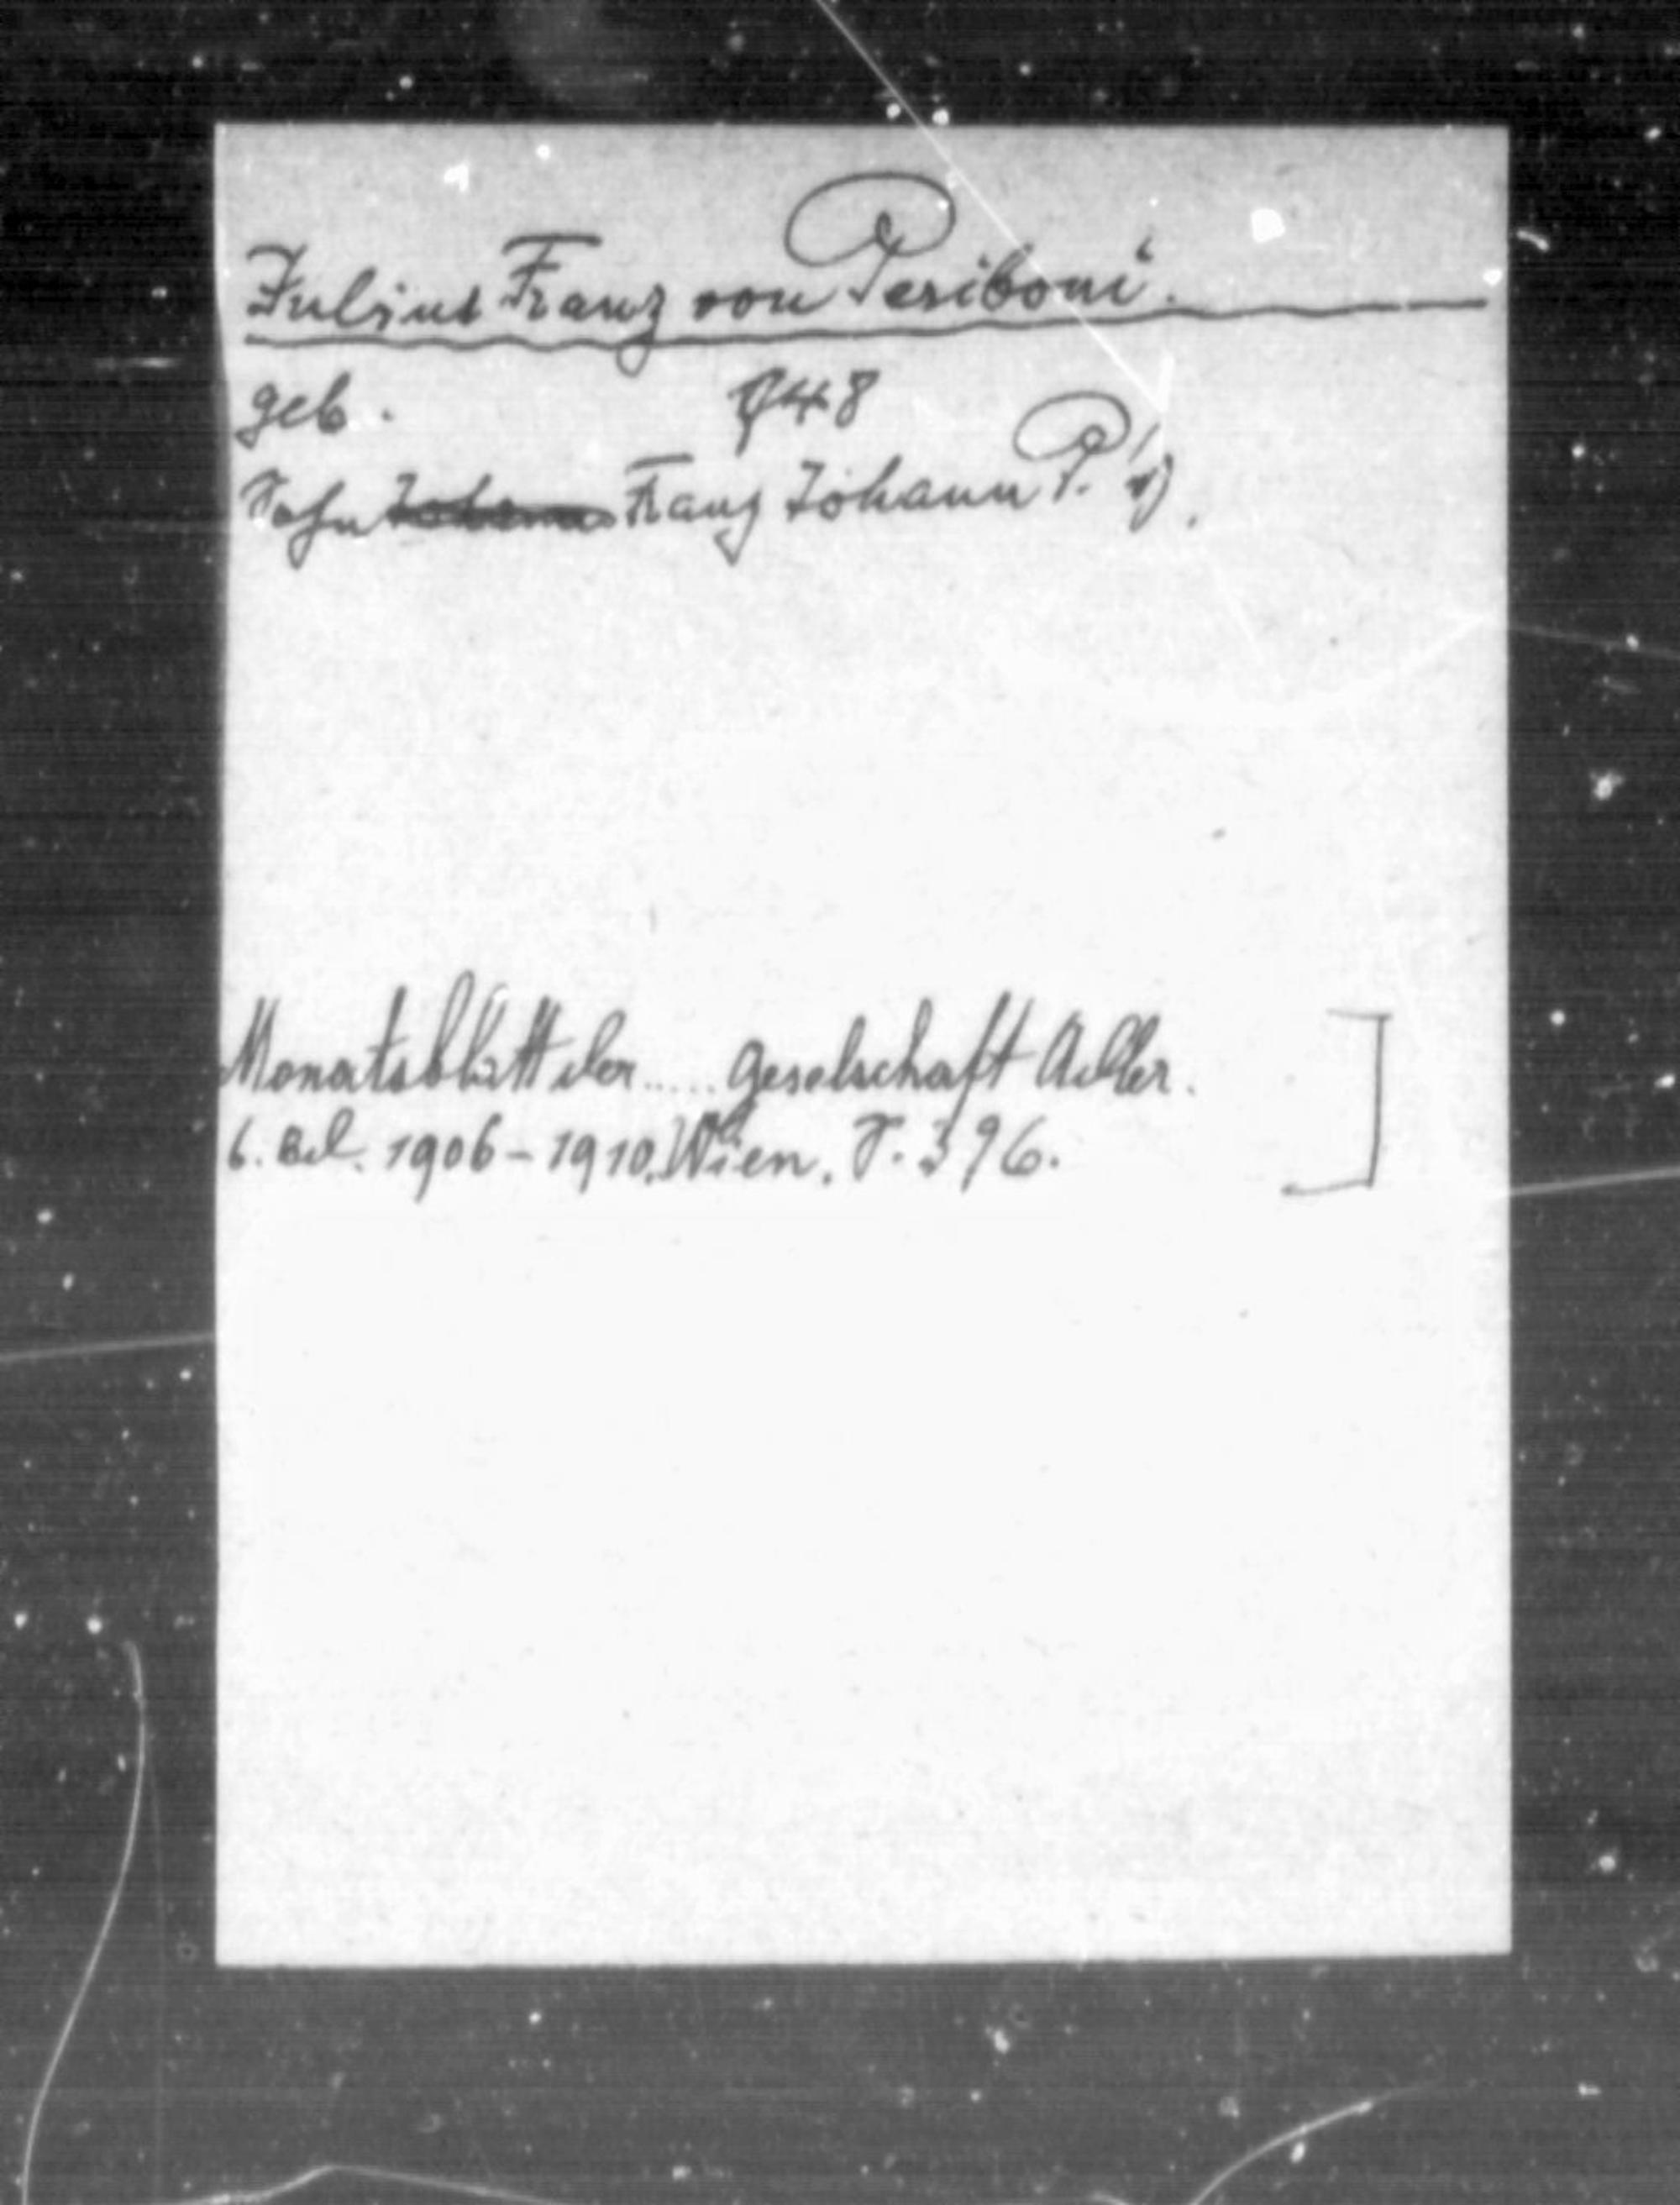 Julius Franz von Periboni.
geb. 748
Sohn Johann Franz Johann P. 1).
Monatsblatt der ..... Geselschaft Adler.
6. Bd. 1906-1910. Wien. S. 396.